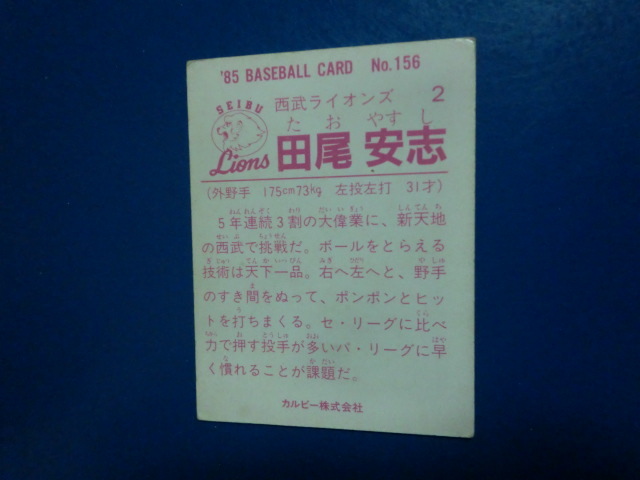 '85 BASEBALL CARD No.156
SEIBU
Lions
西武ライオンズ 2
たおやすし
田尾 安志
(外野手 175cm73kg 左投左打 31才)
5年連続3割の大偉業に、新天地
の西武で挑戦だ。ボールをとらえる
技術は天下一品。右へ左へと、野手
のすき間をぬって、ポンポンとヒッ
トを打ちまくる。セ・リーグに比べ
力で押す投手が多いパ・リーグに早
く慣れることが課題だ。
カルビー株式会社